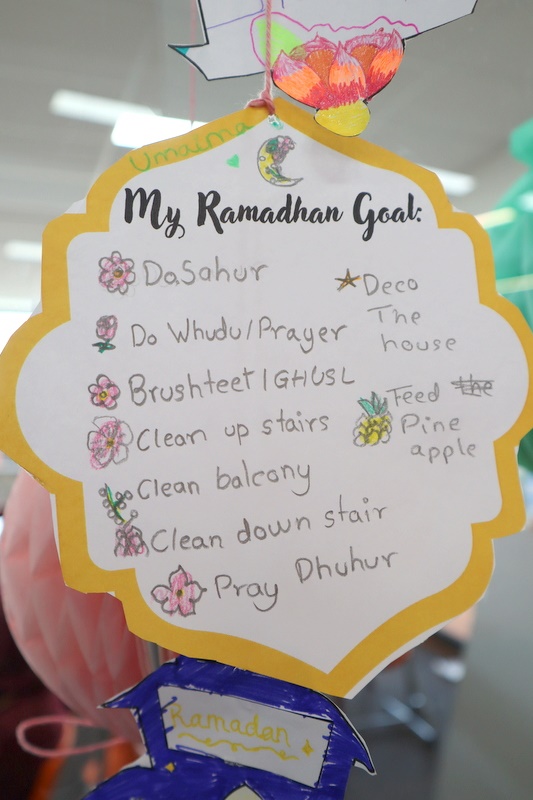 Umaima
My Ramadhan Goal:
Do Sahur
Do Whudu/Prayer
Brushteet/GHUSL
Clean up stairs
Clean balcony
Clean down stair
Pray Dhuhur
Deco
The
house
Feed the
Pine
apple
Ramadan